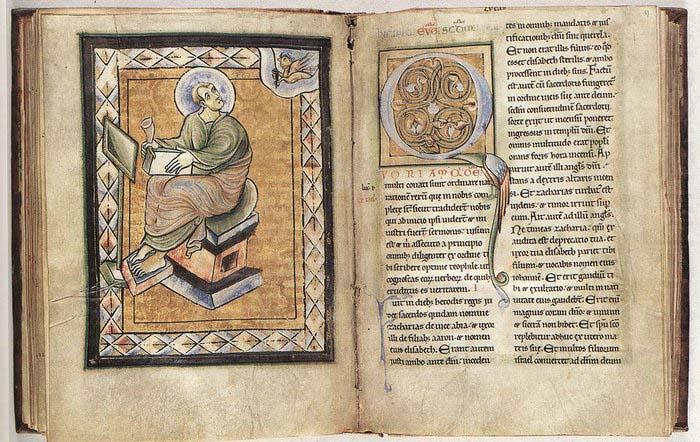 EVG SCDM
UONIAM QDE
multi conati sunt ordinare nar
rationem rerū que in nobis
complete s̄t sicut tradider̄ nobis
qui ab initio ipsi uider̄ & mi
nistri fuer̄t sermonis. uisum
est & m assecuto a principio
omnib; diligenter ex ordine ti
bi scribere optime theophile ut
cognoscas eor̄ uerbor̄ de quib;
eruditus es ueritatem.
uit in dieb; herodis regis iu
sacerdos quidam nomine
zacharias de uice abia & uxor
illi de filiab; aaron & nomen
eius elisabeth. Erant autem
iusti ambo ante dm̄. inceden
tes in omnib; mandatis & ius
tificationib; dn̄i sine querela.
Et non erat illis filius eo qd
esset elisabeth sterilis & ambo
processent in dieb; suis. Factū
est autē cū sacerdotio fungeret̄
in ordine uicis sue ante deum.
scdm̄ consuetudinem sacerdotii
sorte exiit ut incensū poneret
ingressus in templū dn̄i. Et
omnis multitudo erat popl̄i
orans foris hora incensi. Ap
paruit autē illi angls̄ dn̄i
stans a dextris altaris incen
si. Et zacharias turbat̄ est
uidens & timor irruit sup
eum. Ait autē ad illū angls̄.
Ne timeas zacharia: qm̄ ex
audita est deprecatio tua. et
uxor tua elisabeth pariet tibi
filium & uocabis nomen eius
iohannem. Et erit gaudiū
tibi & exultatio. & multi in nati
uitate eius gaudebt̄. Et erit eni
magnus coram dn̄o. & uinum
& sicerā non bibet. Et spū sc̄o
replebitur adhuc ex utero ma
tris sue. Et multos filiorum
israel conuertet ad dn̄m deum